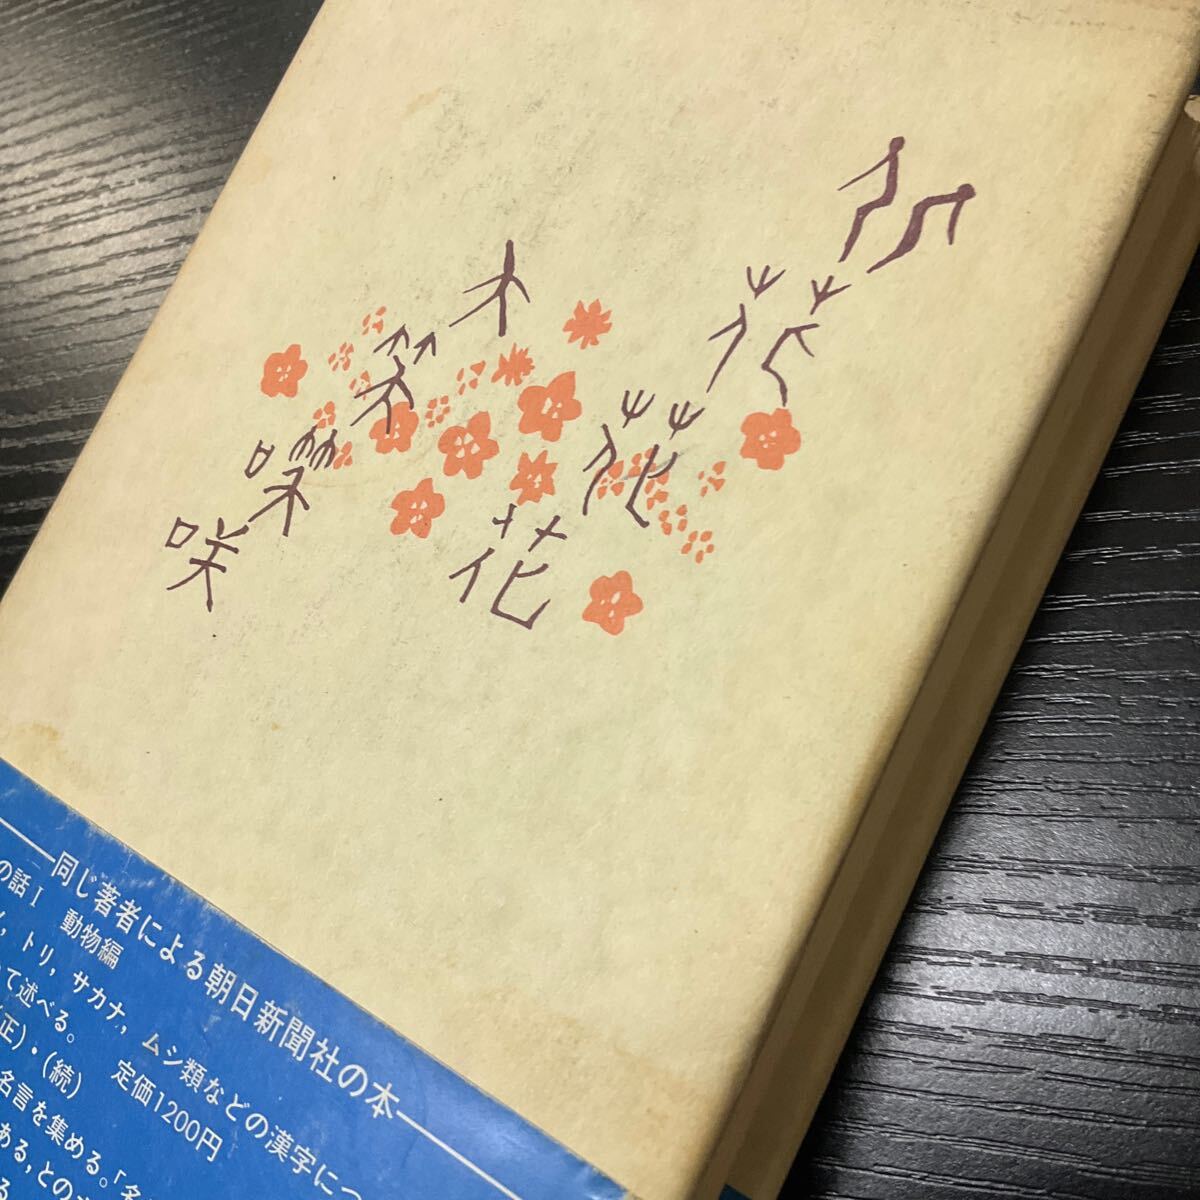 花
花
花
木
咲
──同じ著者による朝日新聞社の本──
の話Ⅰ 動物編
トリ，サカナ，ムシ類などの漢字につ
て述べる。 定価1200円
正)・(続)
名言を集める。「名
ある，との